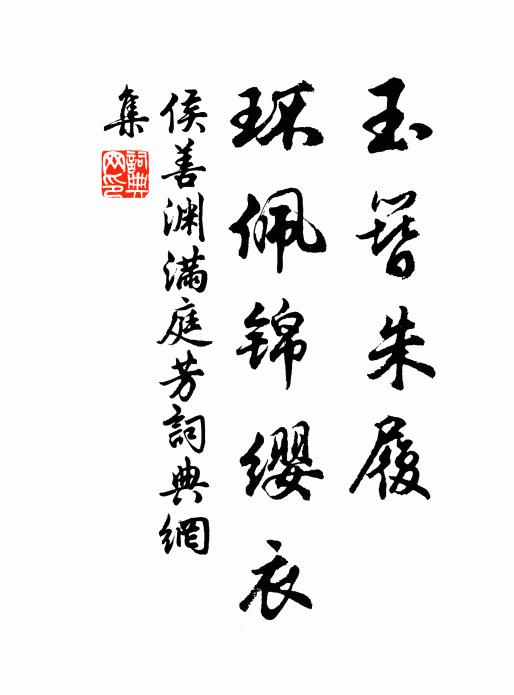 玉簪朱履
环佩锦缨衣
侯善渊满庭芳詞典網
集
詞典
网印